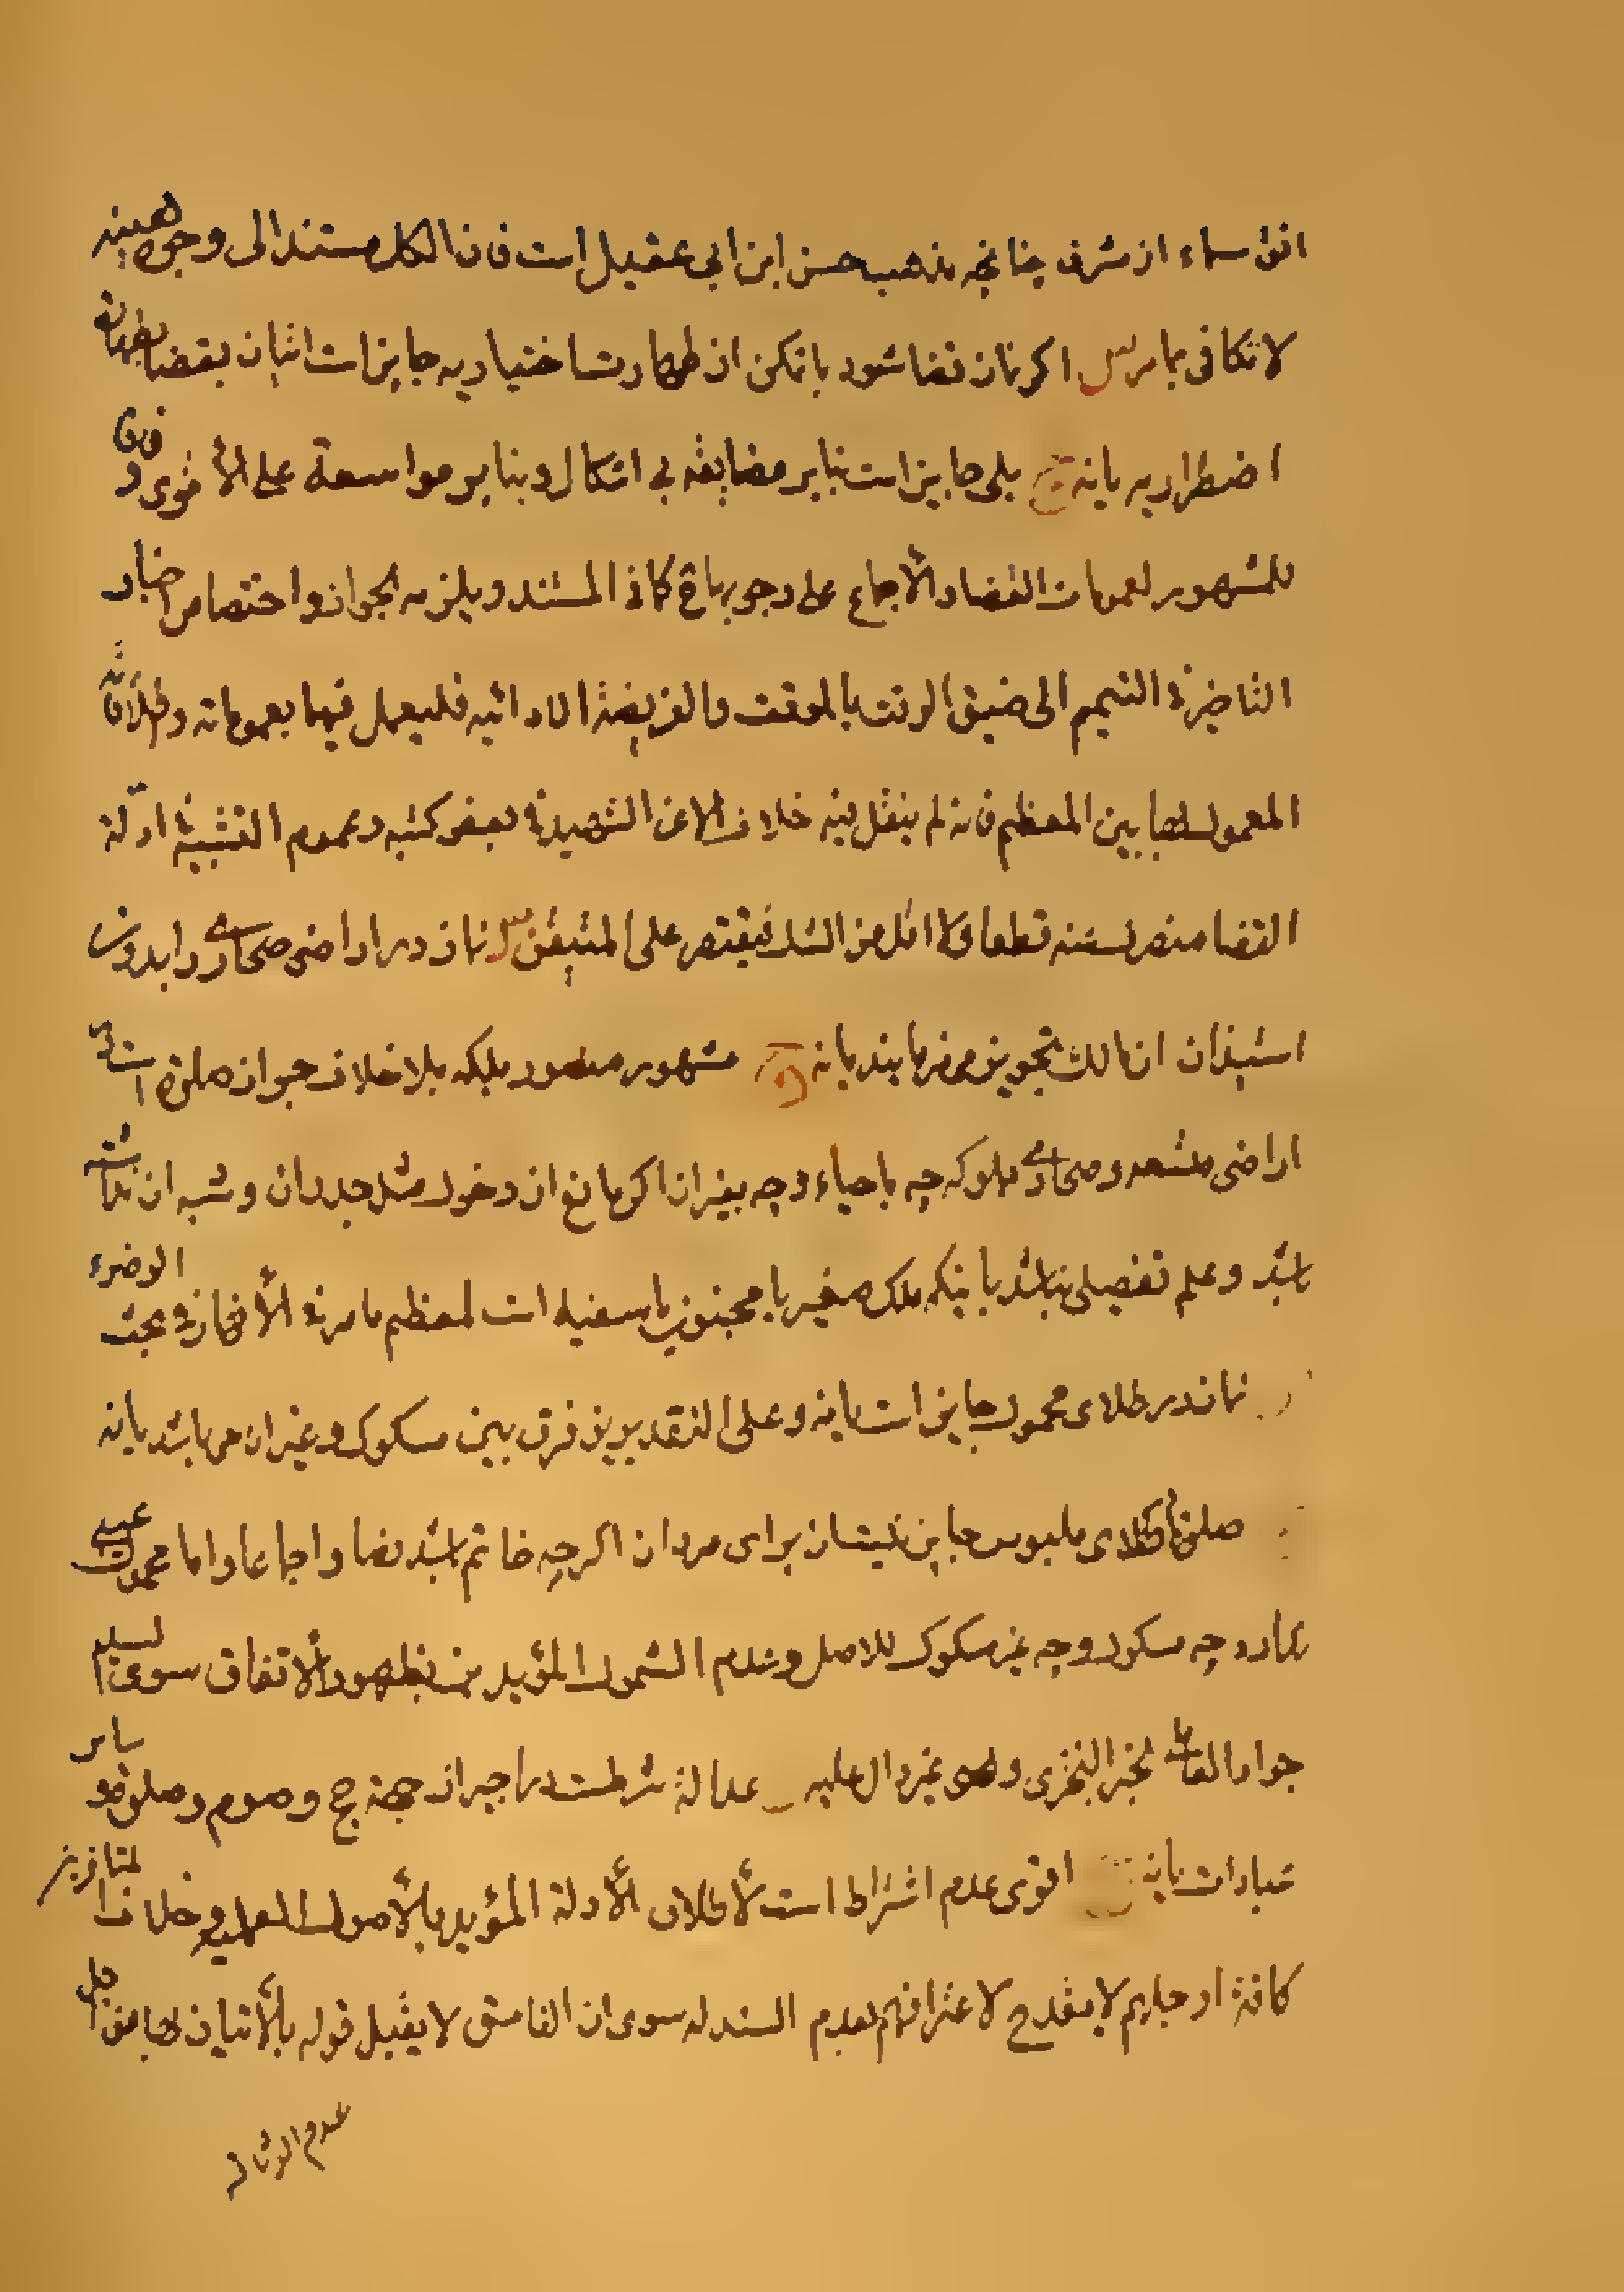 افق سماء از مشرق چنانچه مذهب حسن ابن ابی عقیل است فان الکل مستند الی وجوه هینه
لا تکافی بما مر س اکر نماز قضا شود با تمکن از طهارت اختیاریه جایز است اتیان بقضا بطهارة
اضطراریه یا نه ج بلی جایز است بنابر مضایقه بی اشکال و بنابر مواسعة علی الأقوی وفاقا
للمشهور لعمومات القضا والأجماع علی وجوبها فی کافی المستند ویلزمه الجواز واختصاص اخبار
التیمم الی ضیق الوقت بالموقت والفریضة الادائیه فلیعمل فیها بعموماته واطلاقاته
المعمول بها بین المعظم فانه لم ینقل فیه خلاف الا عن الشهید فی بعض کتبه وعموم التشبیه فی ادلّة
القضا منصرف عنه قطعا ولا اقل من الشک فیقتصر علی المتیقن س نماز در اراضی صحاری را بدون
استیذان از مالک تجویز میفرمایند یا نه ج مشهور منصور بلکه بلا خلاف جواز صلوة است در
اراضی متسعه وصحاری مملوکه چه باحیاء وچه بغیر ان اکر مانع از دخول مثل جدران وشبه ان نداشته
باشد وعلم تفصیلی نباشد باینکه ملک صغیر یا مجنون یا سفیه است لمعظم ما مر فی الأفخاز فی بحث الوضوء
نماز در طلای محمول جایز است یا نه وعلی التقدیرین فرق بین مسکوک وغیر ان میباشد یا نه
صلوة با طلای ملبوس جایز نیست از برای مردان اکرچه خاتم باشد نصا واجماعا واما محمول عیبی
ندارد چه مسکوک وچه غیر مسکوک للاصل وعدم الشمول المؤیدین بظهور الأتفاق سوی السید
جواد العاملی لخبر النمیری وهو غیر دال علیه س عدالة شرطست در اجیر از جهة حج وصوم وصلوة و سایر
عبادات یا نه ج اقوی عدم اشتراط است لأطلاق الأدلة المؤید بالأصول العملیه وخلاف المتاخرین
کافة او جلهم لا یقدح لاعترافهم بعدم السند له سوی ان الفاسق لا یقبل قوله بالأتیان لها من اجل
عدم الوثاقة